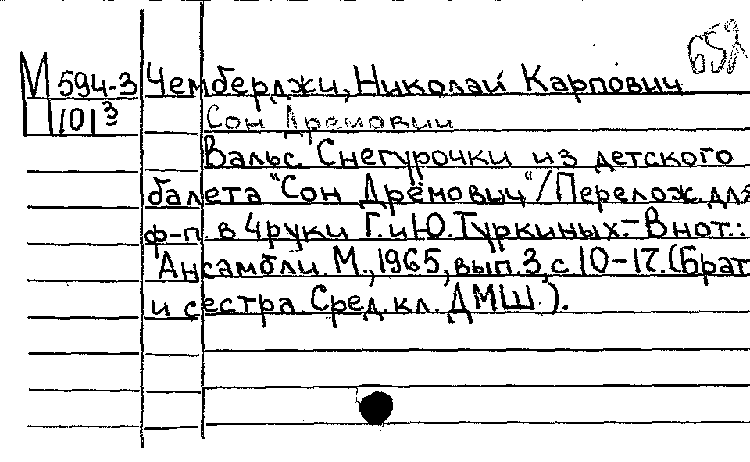 652
М 594-3 Чемберджи, Николай Карпович
П 101³ Сон Дрёмович
Вальс Снегурочки из детского
балета "Сон Дрёмович"/Перелож. для
ф-п. в 4 руки Г. и Ю. Туркиных.- В нот.:
Ансамбли. М., 1965, вып. 3, с. 10-17. (Брат
и сестра. Сред. кл. ДМШ.).